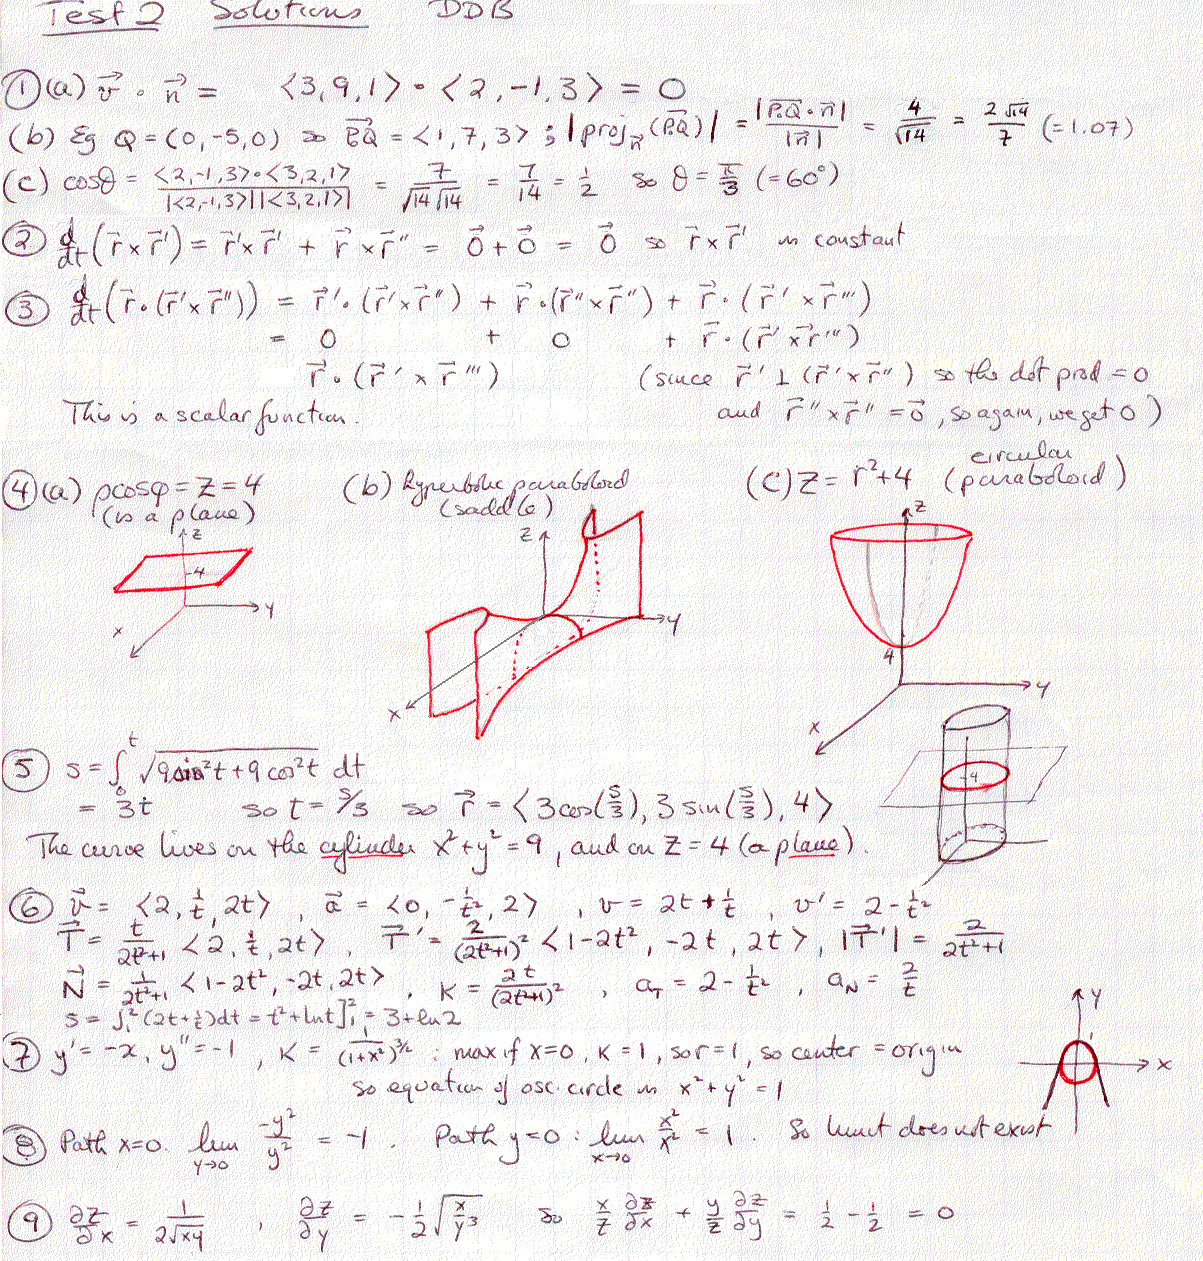 Test 2 Solutions DDB
① (a) v⃗ · n⃗ = <3, 9, 1> · <2, -1, 3> = 0
(b) Eg Q = (0, -5, 0) so P₀Q⃗ = <1, 7, 3> ; |proj_n⃗ (P₀Q⃗)| = |P₀Q⃗ · n⃗| / |n⃗| = 4/√14 = 2√14/7 (= 1.07)
(c) cosθ = <2,-1,3>·<3,2,1> / |<2,-1,3>||<3,2,1>| = 7/√14√14 = 7/14 = 1/2 so θ = π/3 (= 60°)
② d/dt (r⃗ × r⃗') = r⃗' × r⃗' + r⃗ × r⃗'' = 0⃗ + 0⃗ = 0⃗ so r⃗ × r⃗' is constant
③ d/dt (r⃗ · (r⃗' × r⃗'')) = r⃗' · (r⃗' × r⃗'') + r⃗ · (r⃗'' × r⃗'') + r⃗ · (r⃗' × r⃗''')
= 0 + 0 + r⃗ · (r⃗' × r⃗''')
r⃗ · (r⃗' × r⃗''') (since r⃗' ⊥ (r⃗' × r⃗'') so the dot prod = 0
This is a scalar function. and r⃗'' × r⃗'' = 0⃗, so again, we get 0)
④ (a) ρcosφ = z = 4 (b) hyperbolic paraboloid (c) z = r² + 4 (circular paraboloid)
(is a plane) (saddle)
z
4
y
x
z
y
x
z
4
y
x
⑤ s = ∫₀ᵗ √(9 sin²t + 9 cos²t) dt
= 3t so t = s/3 so r⃗ = <3 cos(s/3), 3 sin(s/3), 4>
4
The curve lives on the cylinder x² + y² = 9, and on z = 4 (a plane).
⑥ v⃗ = <2, 1/t, 2t>, a⃗ = <0, -1/t², 2>, v = 2t + 1/t, v' = 2 - 1/t²
T⃗ = t/(2t²+1) <2, 1/t, 2t>, T⃗' = 2/(2t²+1)² <1-2t², -2t, 2t>, |T⃗'| = 2/(2t²+1)
N⃗ = 1/(2t²+1) <1-2t², -2t, 2t>, κ = 2t/(2t²+1)², a_T = 2 - 1/t², a_N = 2/t
s = ∫₁² (2t + 1/t) dt = t² + ln t]₁² = 3 + ln 2
⑦ y' = -x, y'' = -1, κ = 1/(1+x²)^(3/2) : max if x=0, κ = 1, so r = 1, so center = origin
so equation of osc. circle is x² + y² = 1
y
x
⑧ Path x=0. lim y→0 -y²/y² = -1. Path y=0 : lim x→0 x²/x² = 1. So limit does not exist
⑨ ∂z/∂x = 1/(2√xy), ∂z/∂y = -1/2 √(x/y³) so x/z ∂z/∂x + y/z ∂z/∂y = 1/2 - 1/2 = 0